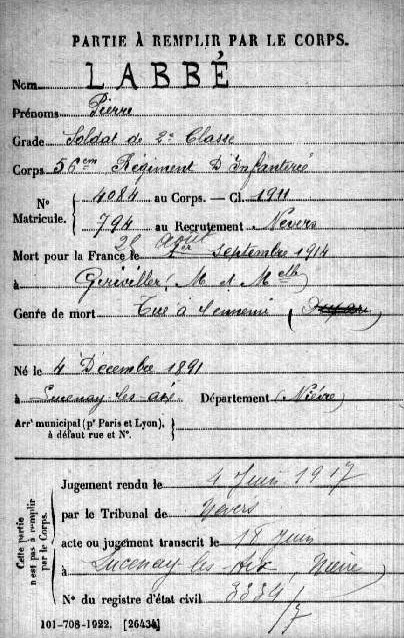 PARTIE À REMPLIR PAR LE CORPS.
Nom LABBÉ
Prénoms Pierre
Grade Soldat de 2e Classe
Corps 56em Régiment D'Infanterie
N° Matricule. 4084 au Corps. — Cl. 1911
794 au Recrutement Nevers
28 Août
Mort pour la France le 1er septembre 1914
à Gerbéviller (M et Melle)
Genre de mort Tué à l'ennemi
Né le 4 Décembre 1891
à Lucenay-les-aix Département (Nièvre)
Arrt municipal (pr Paris et Lyon), à défaut rue et N°.
Cette partie n'est pas à remplir par le Corps.
Jugement rendu le 4 Juin 1917
par le Tribunal de Nevers
acte ou jugement transcrit le 18 Juin
à Lucenay les Aix, Nièvre
N° du registre d'état civil 3334/7
101-708-1922. [26434]